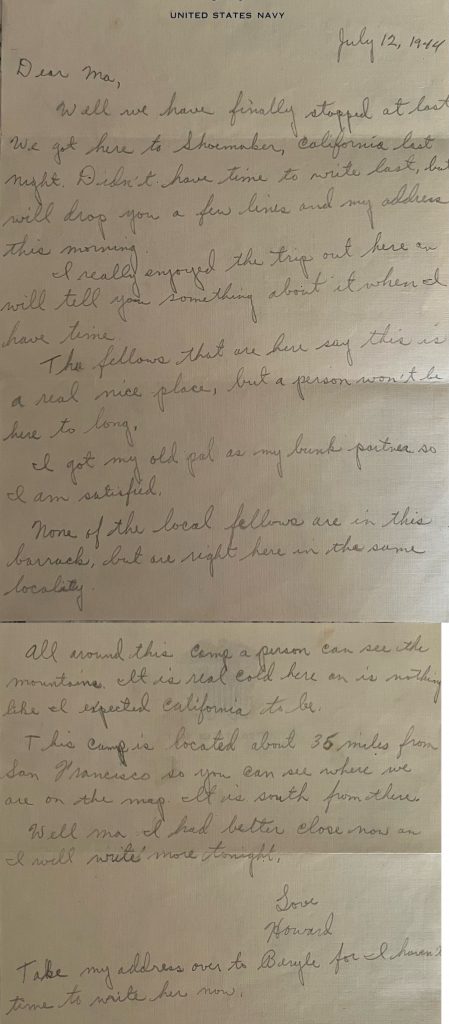 UNITED STATES NAVY
July 12, 1944
Dear Ma,
Well we have finally stopped at last
We got here to Shoemaker, California last
night. Didn't have time to write last, but
will drop you a few lines and my address
this morning.
I really enjoyed the trip out here an
will tell you something about it when I
have time
The fellows that are here say this is
a real nice place, but a person won't be
here to long.
I got my old pal as my bunk partner so
I am satisfied.
None of the local fellows are in this
barrack, but are right here in the same
locality.
All around this camp a person can see the
mountains. It is real cold here an is nothing
like I expected California to be.
This camp is located about 35 miles from
San Francisco so you can see where we
are on the map. It is south from there.
Well ma I had better close now an
I will write more tonight.
Love
Howard
Take my address over to Beryle for I haven't
time to write her now.